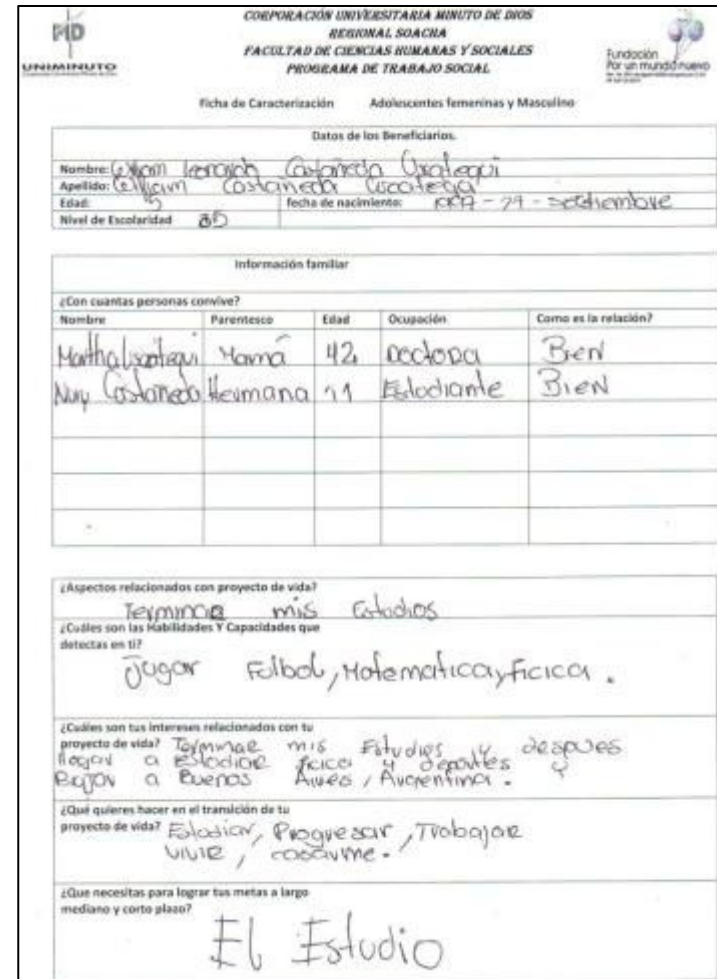 CORPORACIÓN UNIVERSITARIA MINUTO DE DIOS
REGIONAL SOACHA
FACULTAD DE CIENCIAS HUMANAS Y SOCIALES
PROGRAMA DE TRABAJO SOCIAL
UNIMINUTO
Fundación
Por un mundo nuevo
Ficha de Caracterización Adolescentes femeninas y Masculino
Datos de los Beneficiarios.
Nombre: William Leonardo Castañeda
Apellido: William Castañeda
Edad: 15 fecha de nacimiento: - septiembre
Nivel de Escolaridad
Información familiar
¿Con cuantas personas convive?
Nombre Parentesco Edad Ocupación Como es la relación?
Martha Uscategui Mamá 42 Doctora Bien
Castañeda Hermana Estudiante Bien
¿Aspectos relacionados con proyecto de vida?
Terminar mis Estudios
¿Cuáles son las Habilidades Y Capacidades que
detectas en ti?
Jugar Futbol, Matematica y ficica.
¿Cuáles son tus intereses relacionados con tu
proyecto de vida? Terminar mis Estudios y despues
llegar a Estudiar ficica y deportes y
a Buenos Aires, Argentina.
¿Qué quieres hacer en el transición de tu
proyecto de vida? Estudiar, Progresar, Trabajar
vivir, casarme.
¿Que necesitas para lograr tus metas a largo
mediano y corto plazo?
El Estudio